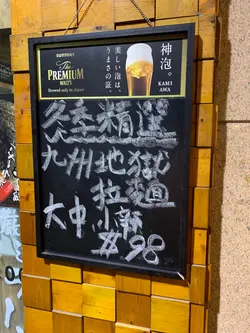 SUNTORY
The
PREMIUM
MALT'S
Brewed only in Japan
神泡。
KAMI
AWA
美しい泡は、
うまさの証。
冬季精選
九州地獄
拉麵
大中小新
#98